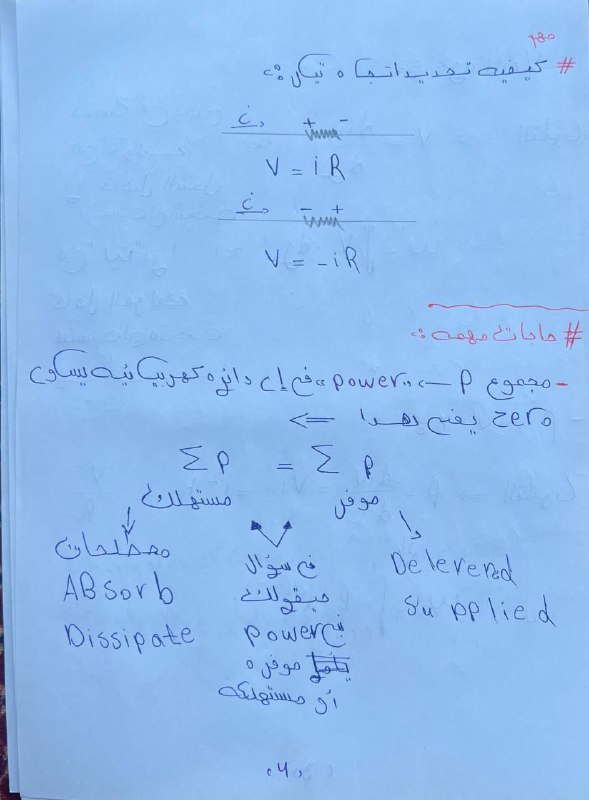 مهم
# كيفيه تحديد اتجاه تيار :-
+ -
V = iR
- +
V = -iR
# حاجات مهمه :-
- مجموع P ← "power" في اي دائره كهربيائيه يساوي
zero يعني بهدا ⇐
Σ P = Σ P
مستهلك موفر
مصطلحات
ABsorb
Dissipate
في سؤال
حيقولك
power
موفره
أو مستهلكه
Delevered
Supplied